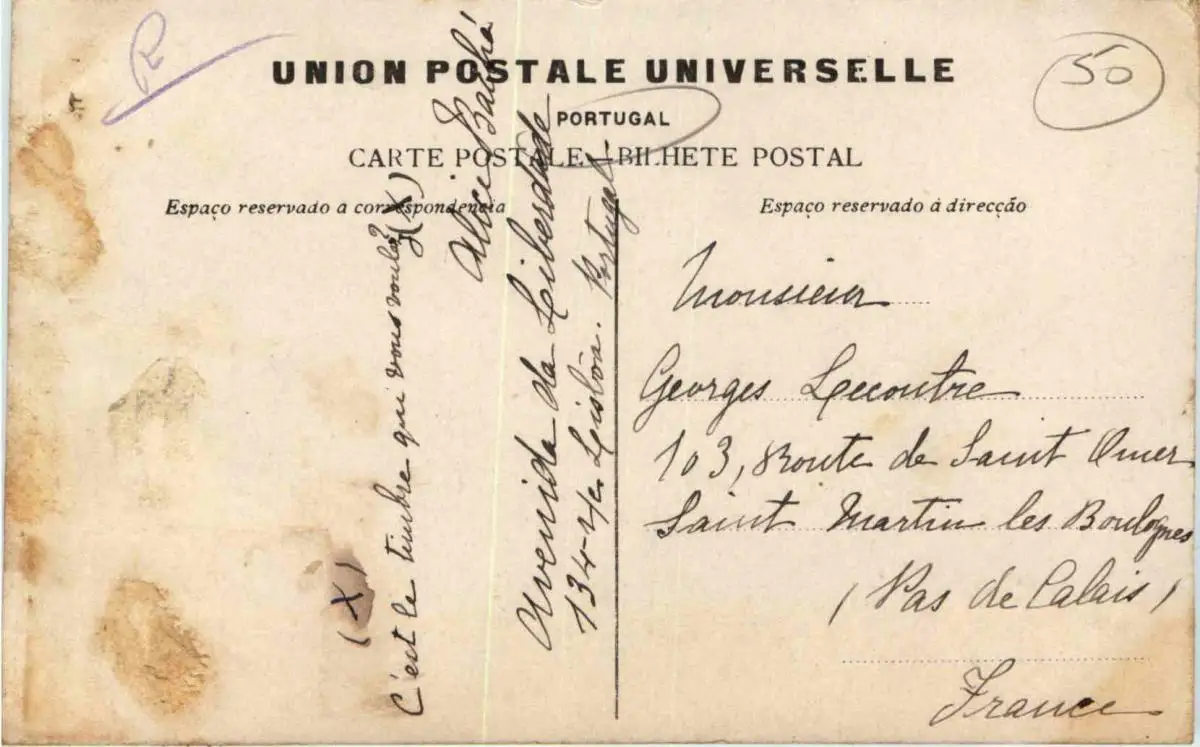 R
50
UNION POSTALE UNIVERSELLE
PORTUGAL
CARTE POSTALE—BILHETE POSTAL
Espaço reservado a correspondencia
Espaço reservado á direcção
(X)
C'est le timbre qui vous voulez? (X)
Alice
Avenida da Liberdade
134-4/e Lisbôa. Portugal
Monsieur
Georges Lecoutre
103, Route de Saint Omer
Saint Martin les Boulognes
(Pas de Calais)
France